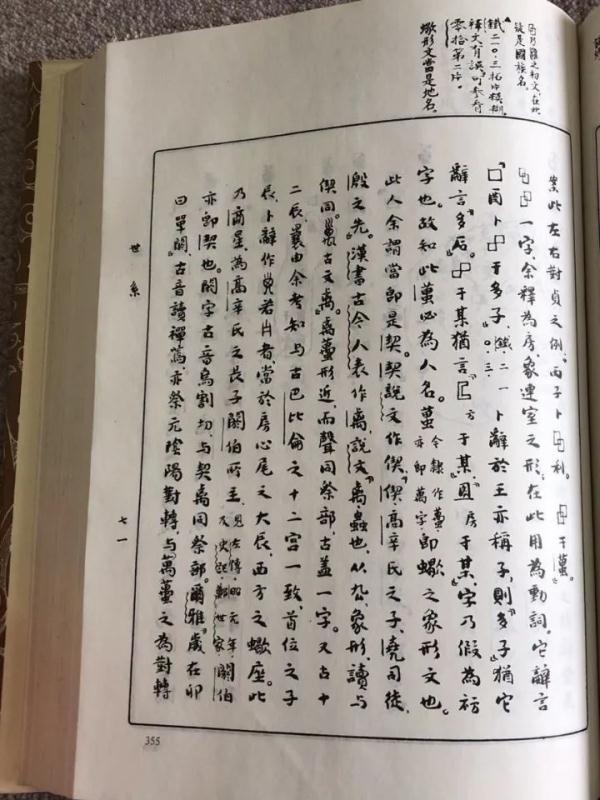 乃雍之初文,在此
疑是國族名。
鐵二一〇·三拓片模糊,
釋文有誤,可參看
零拾第二片。
蠍形文當是地名。
案此左右對貞之例,丙子卜利。于萬。
一字,余釋為房,象連室之形,在此用為動詞。它辭言
酉卜于多子,鐵二一〇·三。卜辭於王亦稱子,則多子猶它
辭言多后。于某猶言方于某,房于某。字乃假為祊
字也。故知此萬必為人名。萬今隸作蠆亦卽萬字,卽蠍之象形文也。
此人余謂當卽是契。契說文作偰,偰,高辛氏之子,堯司徒,
殷之先。漢書古今人表作卨,說文卨蟲也,从厹,象形,讀與
偰同。古文卨。卨蠆形近而聲同祭部,古蓋一字。又古十
二辰,曩由余考知与古巴比倫之十二宮一致,首位之子
辰,卜辭作若者,當於房心尾之大辰,西方之蠍座。此
乃商星,為高辛氏之長子閼伯所主,見左傳昭元年及史記鄭世家。閼伯
亦卽契也。閼字古音烏割切,与契卨同祭部。爾雅歲在卯
曰單閼,古音讀禪蔫,亦祭元陰陽對轉,与萬蠆之為對轉
世系
七一
355